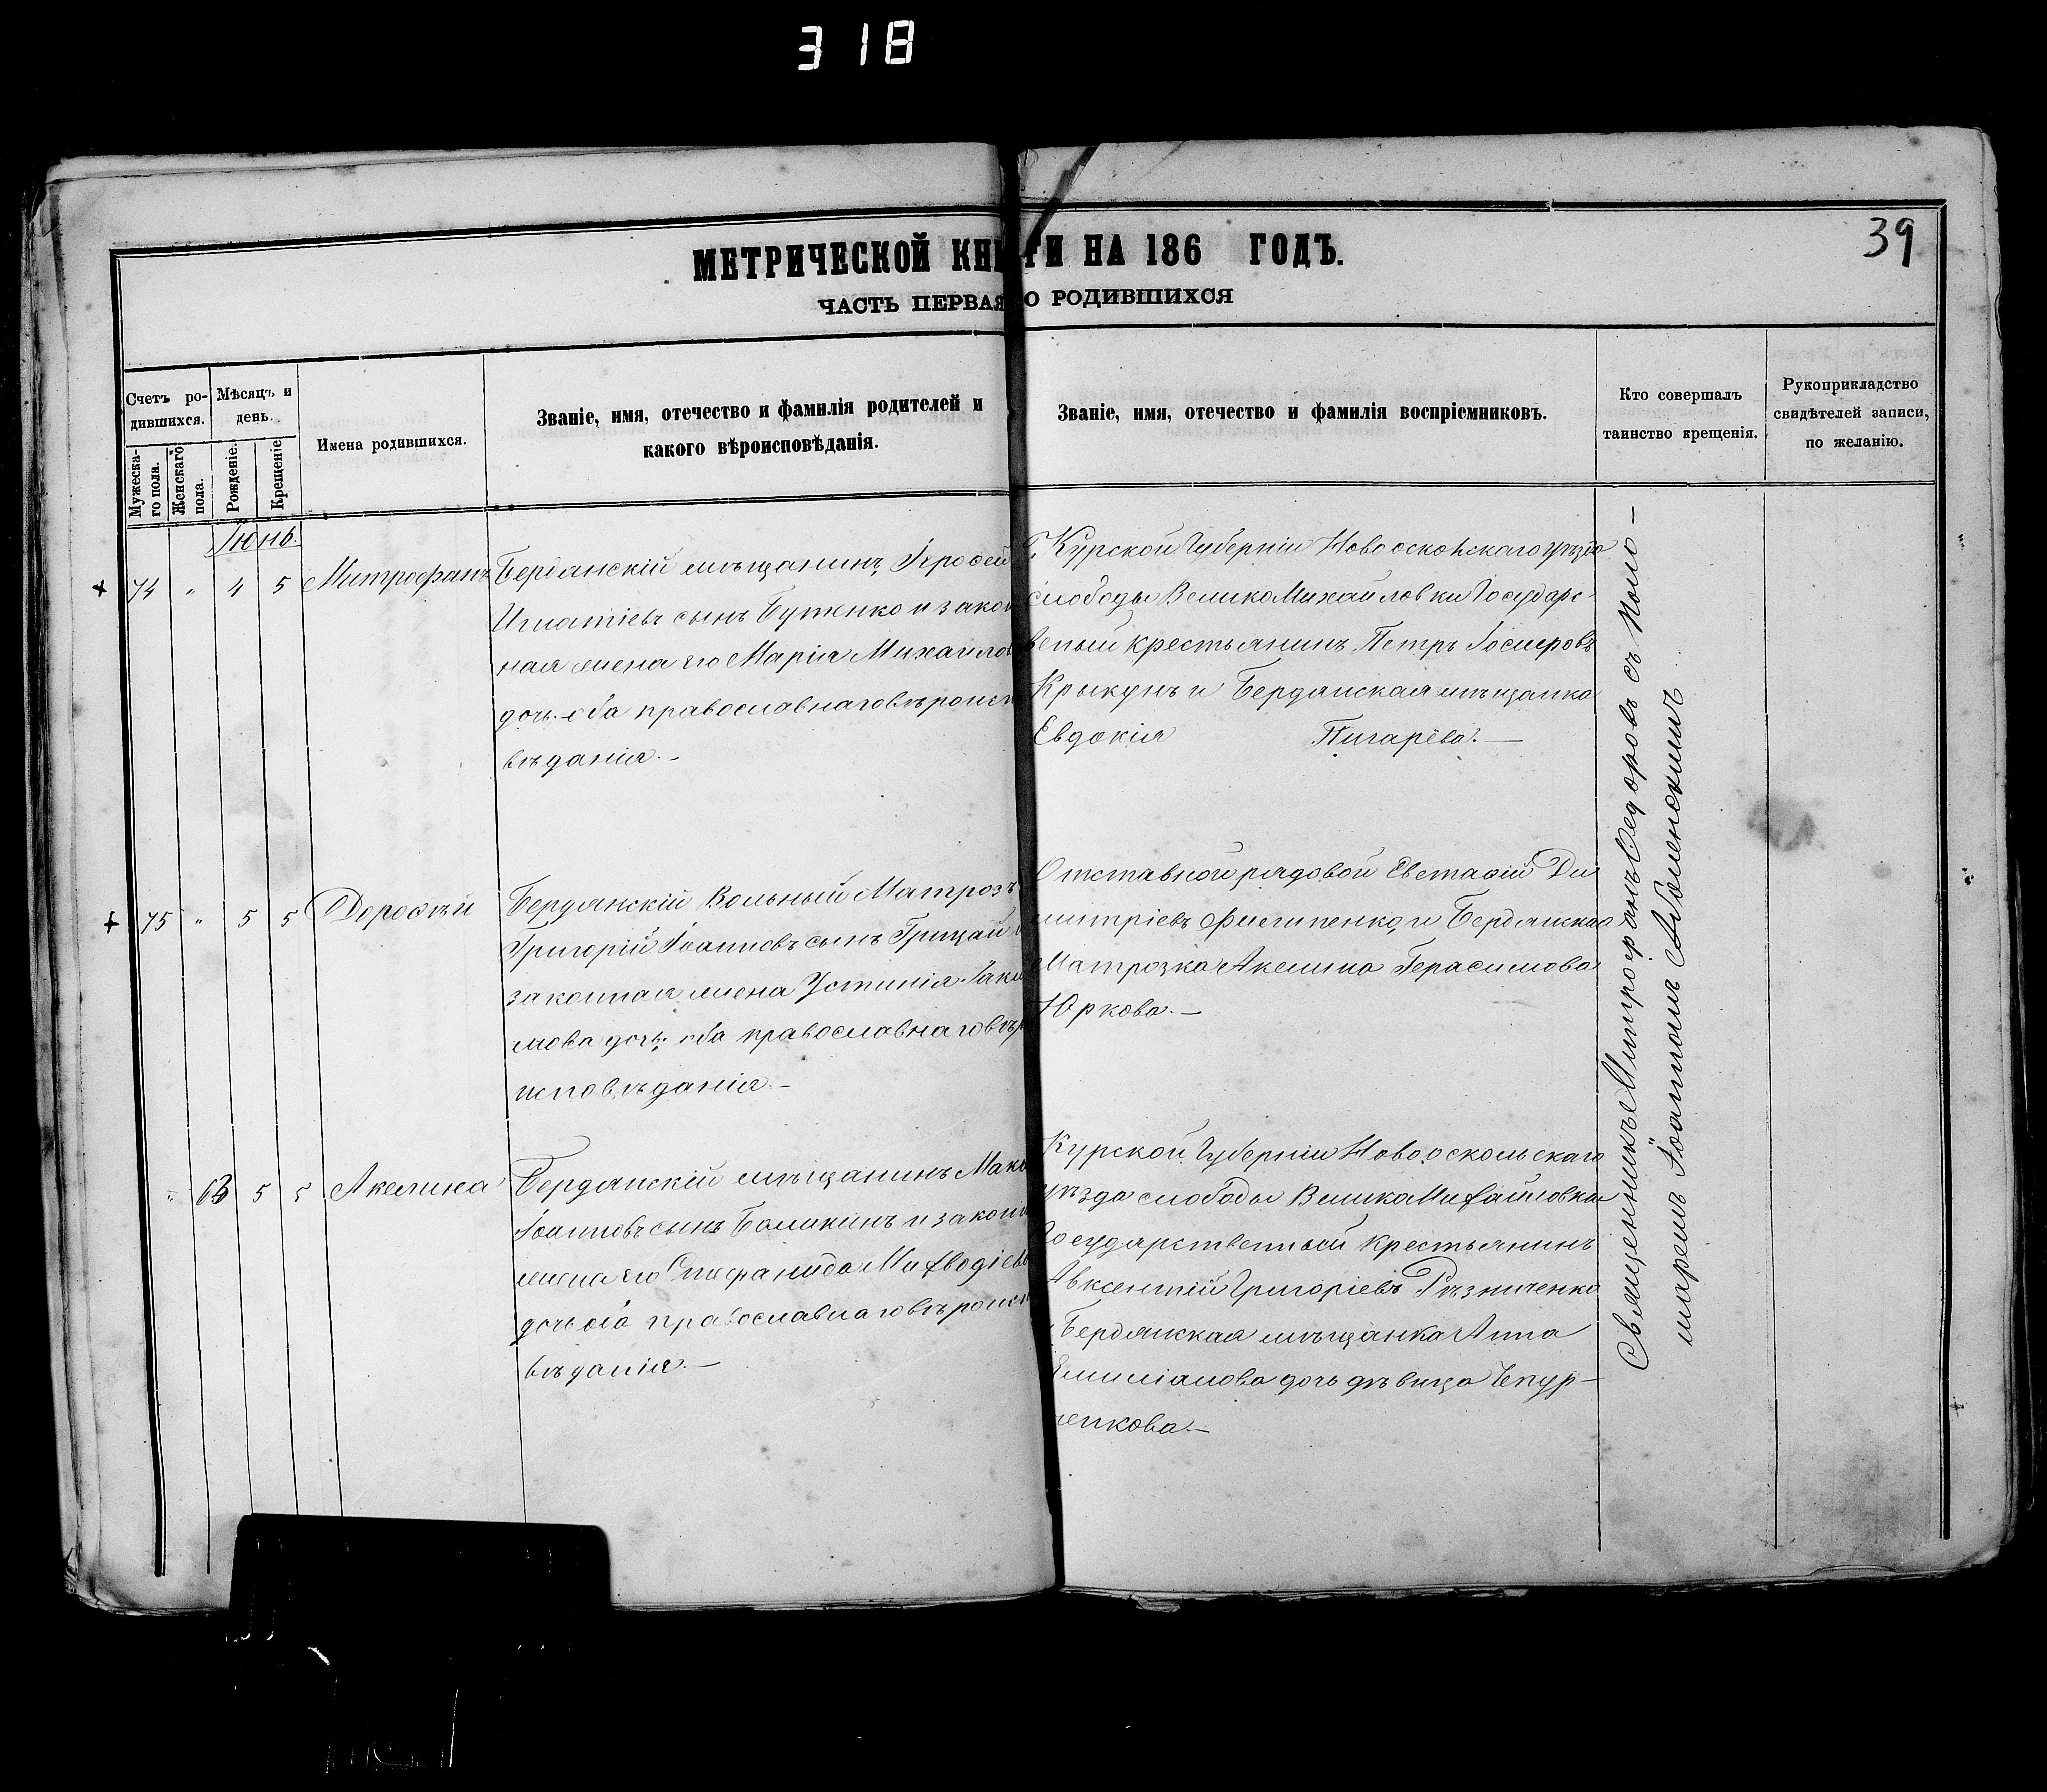 318
39
МЕТРИЧЕСКОЙ КНИГИ НА 186 ГОДЪ.
ЧАСТЬ ПЕРВАЯ О РОДИВШИХСЯ
Счетъ ро-
дившихся.
Мужеска-
го пола.
Женскаго
пола.
Мѣсяцъ и
день.
Рожденіе.
Крещеніе
Имена родившихся.
Званіе, имя, отечество и фамилія родителей и
какого вѣроисповѣданія.
Званіе, имя, отечество и фамилія воспріемниковъ.
Кто совершалъ
таинство крещенія.
Рукоприкладство
свидѣтелей записи,
по желанію.
Іюнь.
74 " 4 5 Митрофанъ
Бердянскій мѣщанинъ Іерофей
Игнатіевъ сынъ Бутенко и закон
ная жена его Марія Михайлов
дочь оба православнаго вѣроисп
вѣданія.
Курской Губерніи Новооскольскаго уѣзда
слободы ВеликоМихайловки Государс-
веный крестьянинъ Петръ
Крыкунъ и Бердянская мѣщанка
Евдокія Пигарёва.
75 " 5 5 Дороѳей
Бердянскій Вольный Матрозъ
Григорій Іоанновъ сынъ Грицай
законная жена Устинія Іаки
мова дочь; оба православнаго вѣр
исповѣданія.
Отставной рядовой Евстафій Ди
митріевъ и Бердянская
Матрозка Акелина Герасимова
Юркова.
" 63 5 5 Акелина
Бердянскій мѣщанинъ
Іоанновъ сынъ Баликинъ и закон
жена его Стефанида Меѳодіев
дочь оба православнаго вѣроисп
вѣданія.
Курской Губерніи Новооскольскаго
уѣзда слободы ВеликаМихайловки
Государственный крестьянинъ
Авксентій Григоріевъ Рѣзниченко
Бердянская мѣщанка Анна
Емиліанова дочь дѣвица Чепур-
ненкова.
Священникъ Митрофанъ Седоровъ съ Поно-
маремъ Іоанномъ